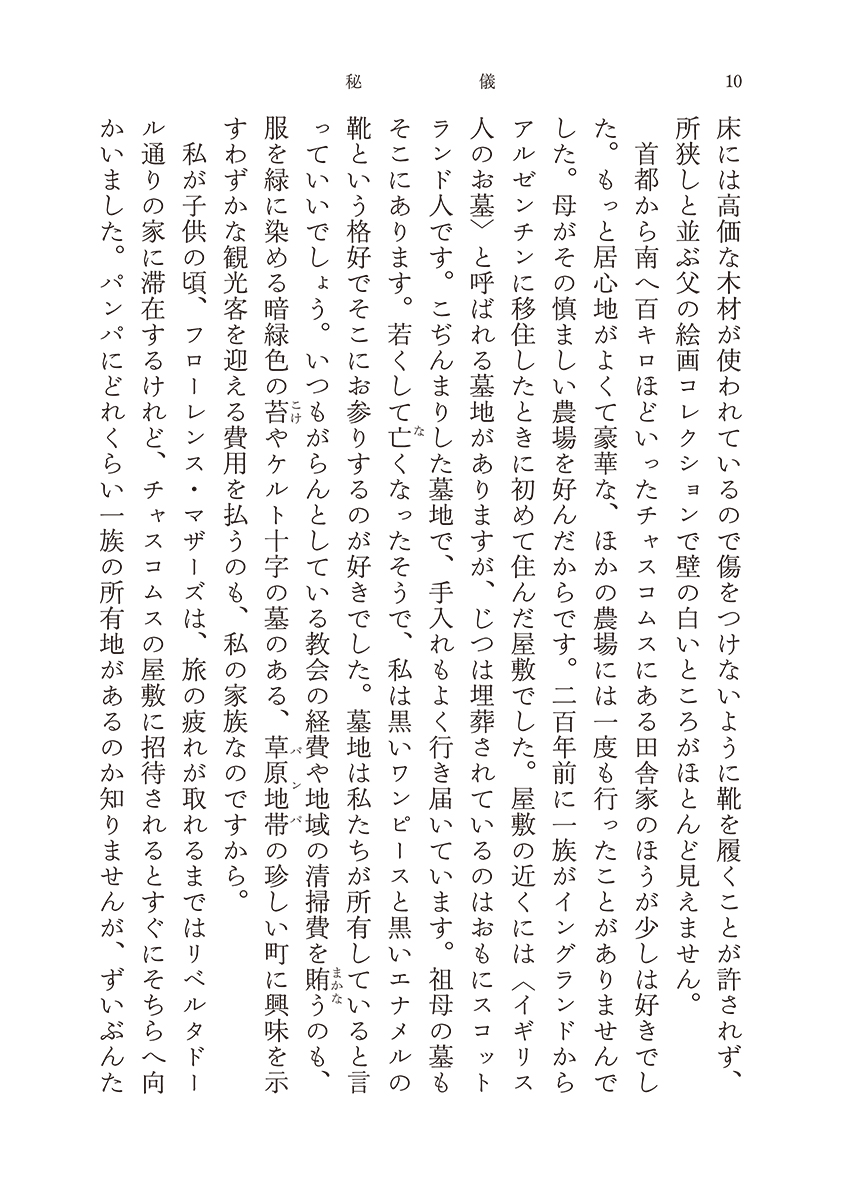 10
秘儀
床には高価な木材が使われているので傷をつけないように靴を履くことが許されず、
所狭しと並ぶ父の絵画コレクションで壁の白いところがほとんど見えません。
首都から南へ百キロほどいったチャスコムスにある田舎家のほうが少しは好きでし
た。もっと居心地がよくて豪華な、ほかの農場には一度も行ったことがありませんで
した。母がその慎ましい農場を好んだからです。二百年前に一族がイングランドから
アルゼンチンに移住したときに初めて住んだ屋敷でした。屋敷の近くには〈イギリス
人のお墓〉と呼ばれる墓地がありますが、じつは埋葬されているのはおもにスコット
ランド人です。こぢんまりした墓地で、手入れもよく行き届いています。祖母の墓も
そこにあります。若くして亡くなったそうで、私は黒いワンピースと黒いエナメルの
靴という格好でそこにお参りするのが好きでした。墓地は私たちが所有していると言
っていいでしょう。いつもがらんとしている教会の経費や地域の清掃費を賄うのも、
服を緑に染める暗緑色の苔やケルト十字の墓のある、草原地帯の珍しい町に興味を示
すわずかな観光客を迎える費用を払うのも、私の家族なのですから。
私が子供の頃、フローレンス・マザーズは、旅の疲れが取れるまではリベルタドー
ル通りの家に滞在するけれど、チャスコムスの屋敷に招待されるとすぐにそちらへ向
かいました。パンパにどれくらい一族の所有地があるのか知りませんが、ずいぶんた
な
まかな
こけ
パンパ